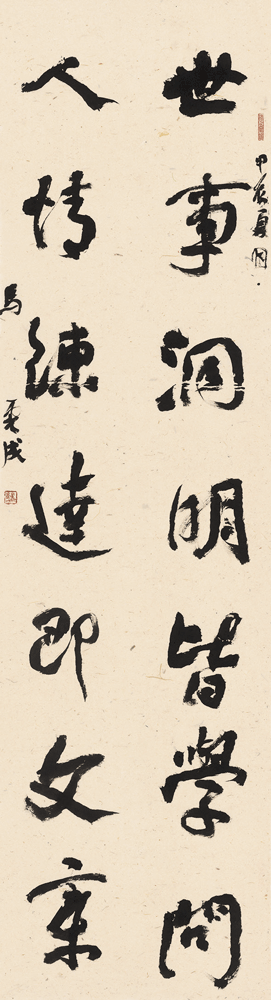 世事洞明皆學問
甲辰夏月
人情練達即文章
馬
成